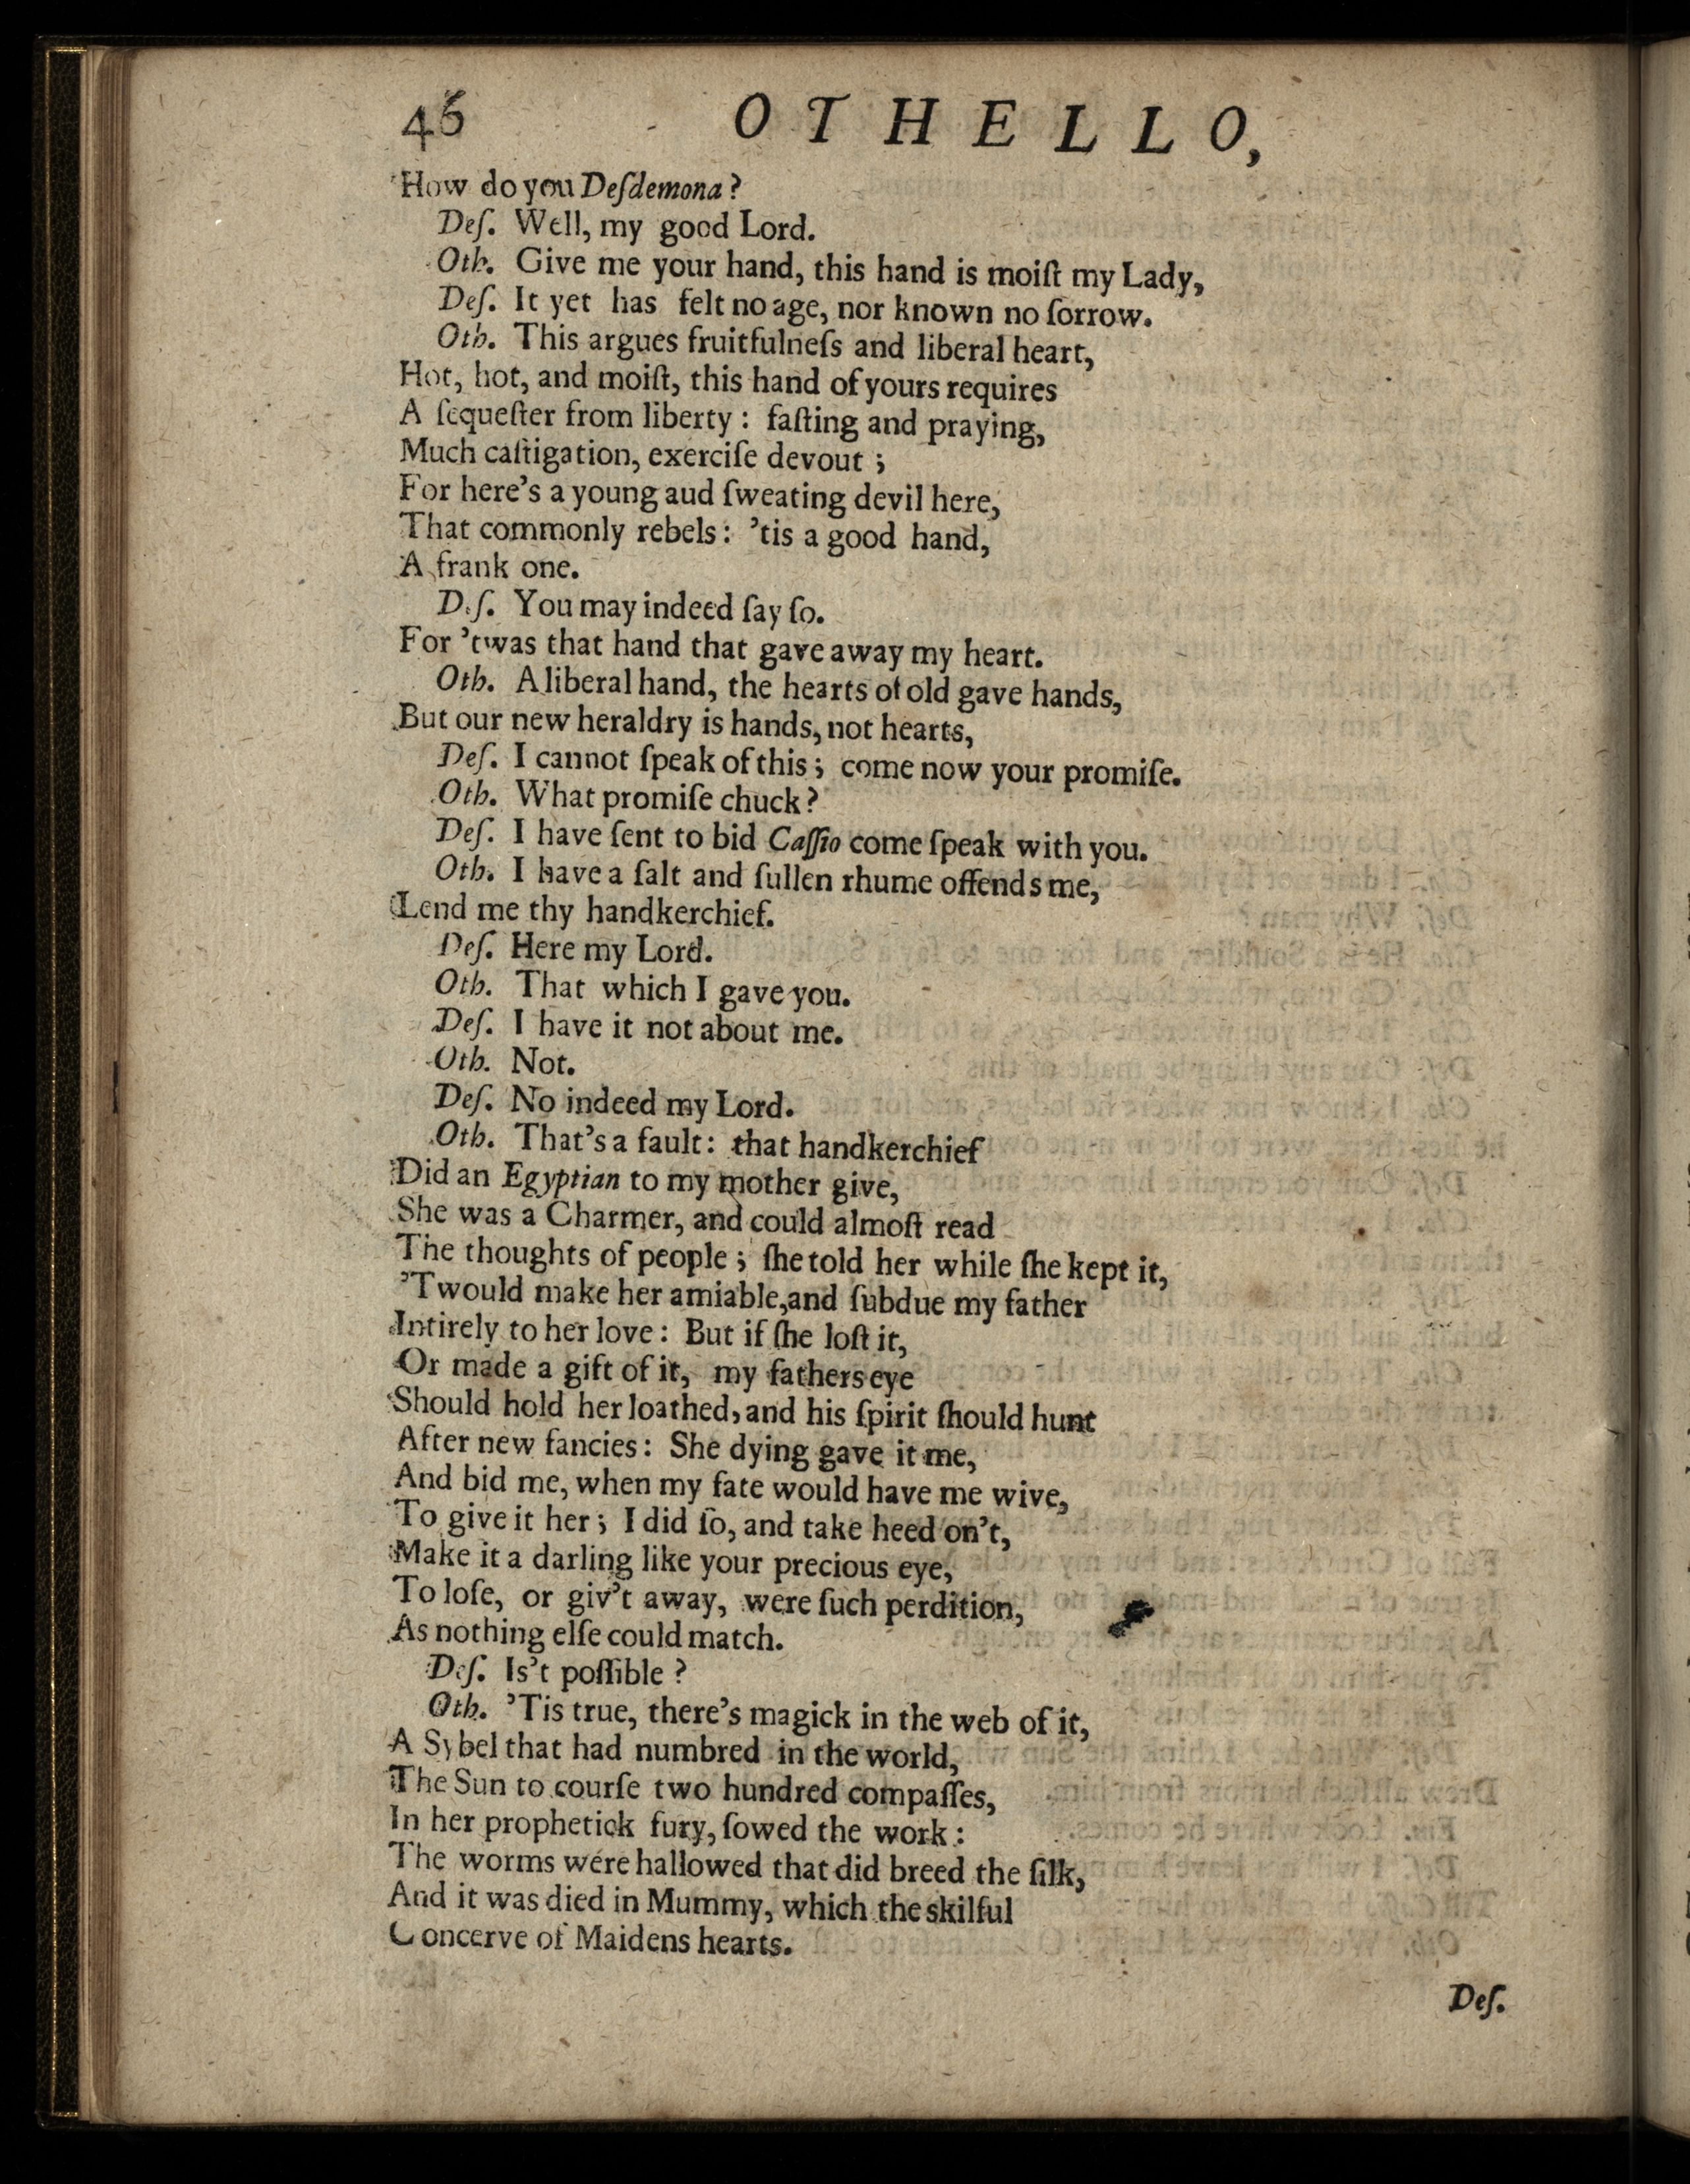 46 OTHELLO,
How do you Deſdemona?
Deſ. Well, my good Lord.
Oth. Give me your hand, this hand is moiſt my Lady,
Deſ. It yet has felt no age, nor known no ſorrow.
Oth. This argues fruitfulneſs and liberal heart,
Hot, hot, and moiſt, this hand of yours requires
A ſequeſter from liberty: faſting and praying,
Much caſtigation, exerciſe devout;
For here's a young aud ſweating devil here,
That commonly rebels: 'tis a good hand,
A frank one.
Deſ. You may indeed ſay ſo.
For 'twas that hand that gave away my heart.
Oth. A liberal hand, the hearts of old gave hands,
But our new heraldry is hands, not hearts,
Deſ. I cannot ſpeak of this; come now your promiſe.
Oth. What promiſe chuck?
Deſ. I have ſent to bid Caſſio come ſpeak with you.
Oth. I have a ſalt and ſullen rhume offends me,
Lend me thy handkerchief.
Deſ. Here my Lord.
Oth. That which I gave you.
Deſ. I have it not about me.
Oth. Not.
Deſ. No indeed my Lord.
Oth. That's a fault: that handkerchief
Did an Egyptian to my mother give,
She was a Charmer, and could almoſt read
The thoughts of people; ſhe told her while ſhe kept it,
'Twould make her amiable,and ſubdue my father
Intirely to her love: But if ſhe loſt it,
Or made a gift of it, my fathers eye
Should hold her loathed, and his ſpirit ſhould hunt
After new fancies: She dying gave it me,
And bid me, when my fate would have me wive,
To give it her; I did ſo, and take heed on't,
Make it a darling like your precious eye,
To loſe, or giv't away, were ſuch perdition,
As nothing elſe could match.
Deſ. Is't poſſible?
Oth. 'Tis true, there's magick in the web of it,
A Sybel that had numbred in the world,
The Sun to courſe two hundred compaſſes,
In her prophetick fury, ſowed the work:
The worms were hallowed that did breed the ſilk,
And it was died in Mummy, which the skilful
Concerve of Maidens hearts.
Deſ.